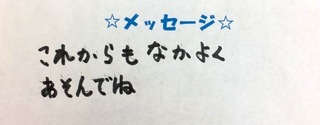 ☆メッセージ☆
これからも なかよく
あそんでね